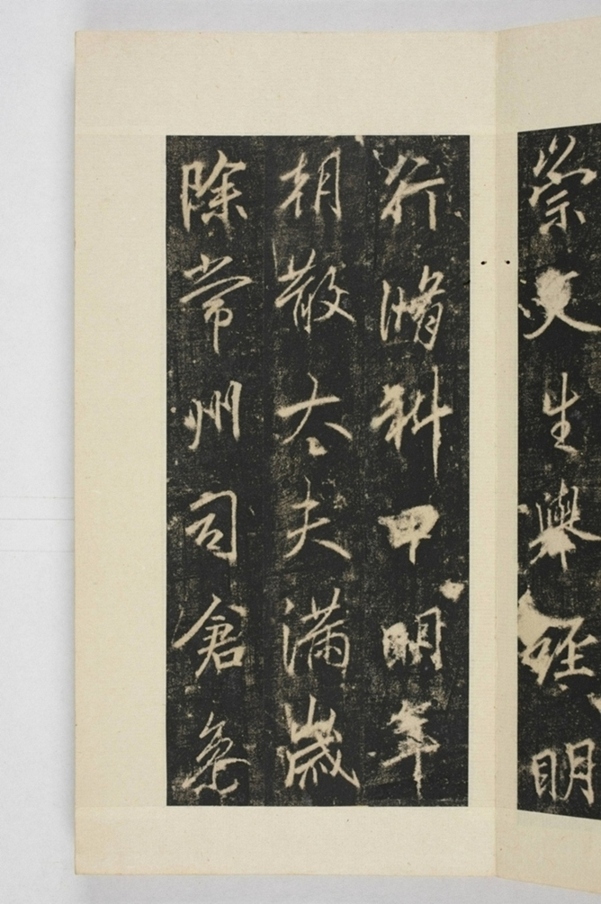 崇文生舉經明
行脩科甲明年
朝散大夫滿歲
除常州司倉參